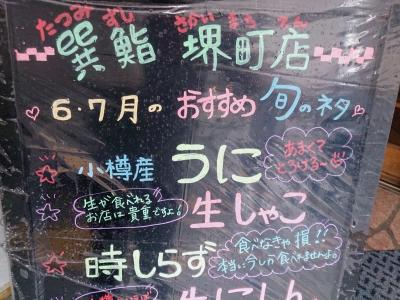 たつみ ずし さかい まち てん
巽鮨 堺町店
6・7月の おすすめ 旬のネタ
小樽産 うに
あまくて
とろける〜
生が食べれる
お店は貴重ですよ。
生しゃこ
時しらず
食べなきゃ損!!
本当に今しか食べれませんよ。
生にしん